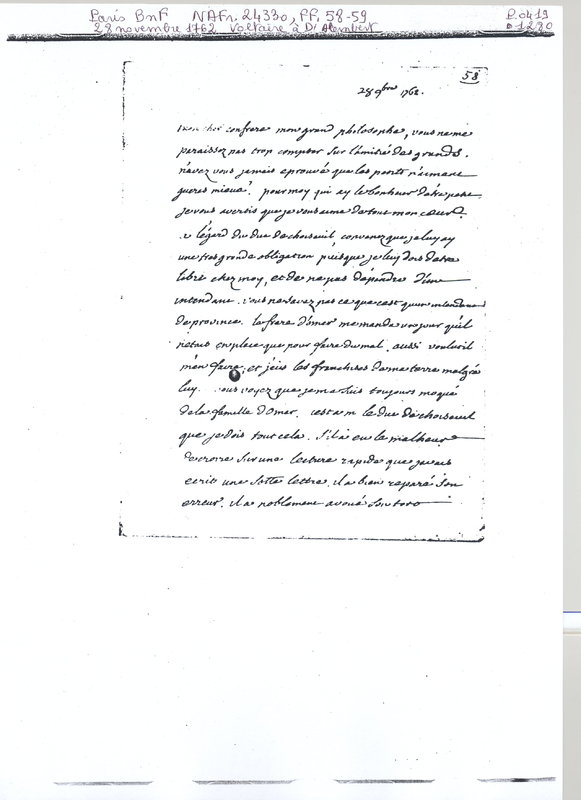 Paris BnF NAFr. 24330, ff. 58-59 P. 0419
28 novembre 1762 Voltaire à D'Alembert D1280
58
28 9bre 1762.
Mon cher confrere mon grand philosophe, vous ne me
paraissez pas trop compter sur l'amitié des grands.
n'avez vous jamais eprouvé que les petits n'aiment
gueres mieux? pour moy qui ay le bonheur d'etre petit
je vous avertis que je vous aime de tout mon coeur.
a légard du duc de choiseuil, convenez que je luy ay
une tres grande obligation puisque je luy dois d'etre
libre chez moy, et de ne pas dépendre d'un
intendant. vous ne savez pas ce que cest qu'un intendant
de province. le frere d'omer me manda un jour qu'il
n'etait en place que pour faire du mal. aussi voulut il
m'en faire, et j'eus les franchises de ma terre malgré
luy. vous voyez que je me suis toujours moqué
de la famille d'Omer. cest a m le duc de choiseuil
que je dois tout cela. s'il a eu le malheur
de croire sur une lecture rapide que javais
ecrit une sotte lettre, il a bien reparé son
erreur. il a noblement avoué son tort